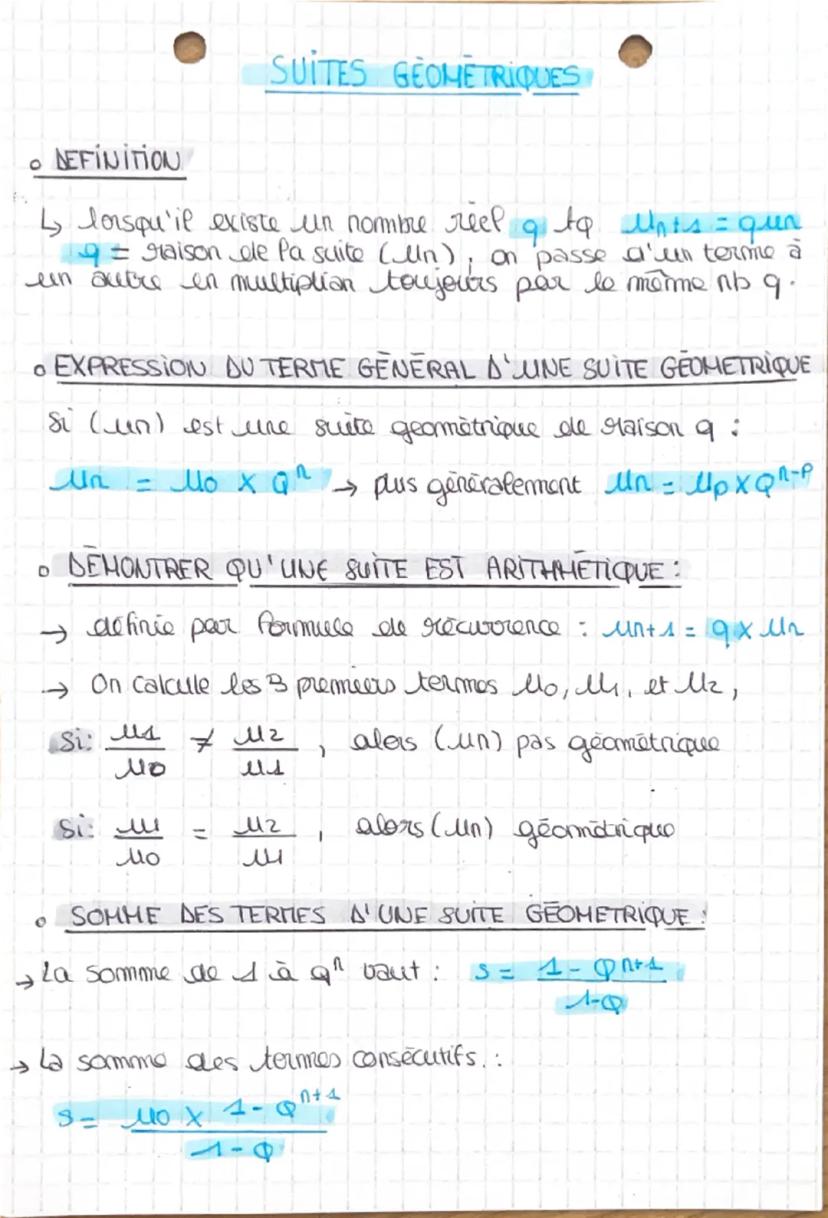 SUITES GÉOMÉTRIQUES
° DEFINITION
↳ lorsqu'il existe un nombre réel q tq Un+1 = qun
q = raison de la suite (Un), on passe d'un terme à
un autre en multiplian toujours par le même nb q.
° EXPRESSION DU TERME GÉNÉRAL D'UNE SUITE GÉOMETRIQUE
Si (un) est une suite geométrique de raison q :
Un = U0 x Qⁿ → plus généralement Un = Up x Qⁿ⁻ᵖ
° DÉMONTRER QU'UNE SUITE EST ARITHMÉTIQUE :
→ définie par formule de récurrence : Un+1 = q x Un
→ On calcule les 3 premiers termes U0, U1, et U2,
Si: U1/U0 ≠ U2/U1, alors (Un) pas géométrique
Si: U1/U0 = U2/U1, alors (Un) géométrique
° SOMME DES TERMES D'UNE SUITE GÉOMETRIQUE :
→ La somme de 1 à qⁿ vaut : S = 1 - Qⁿ⁺¹ / 1-Q
→ La somme des termes consécutifs. :
S = U0 x 1 - Qⁿ⁺¹ / 1 - Q